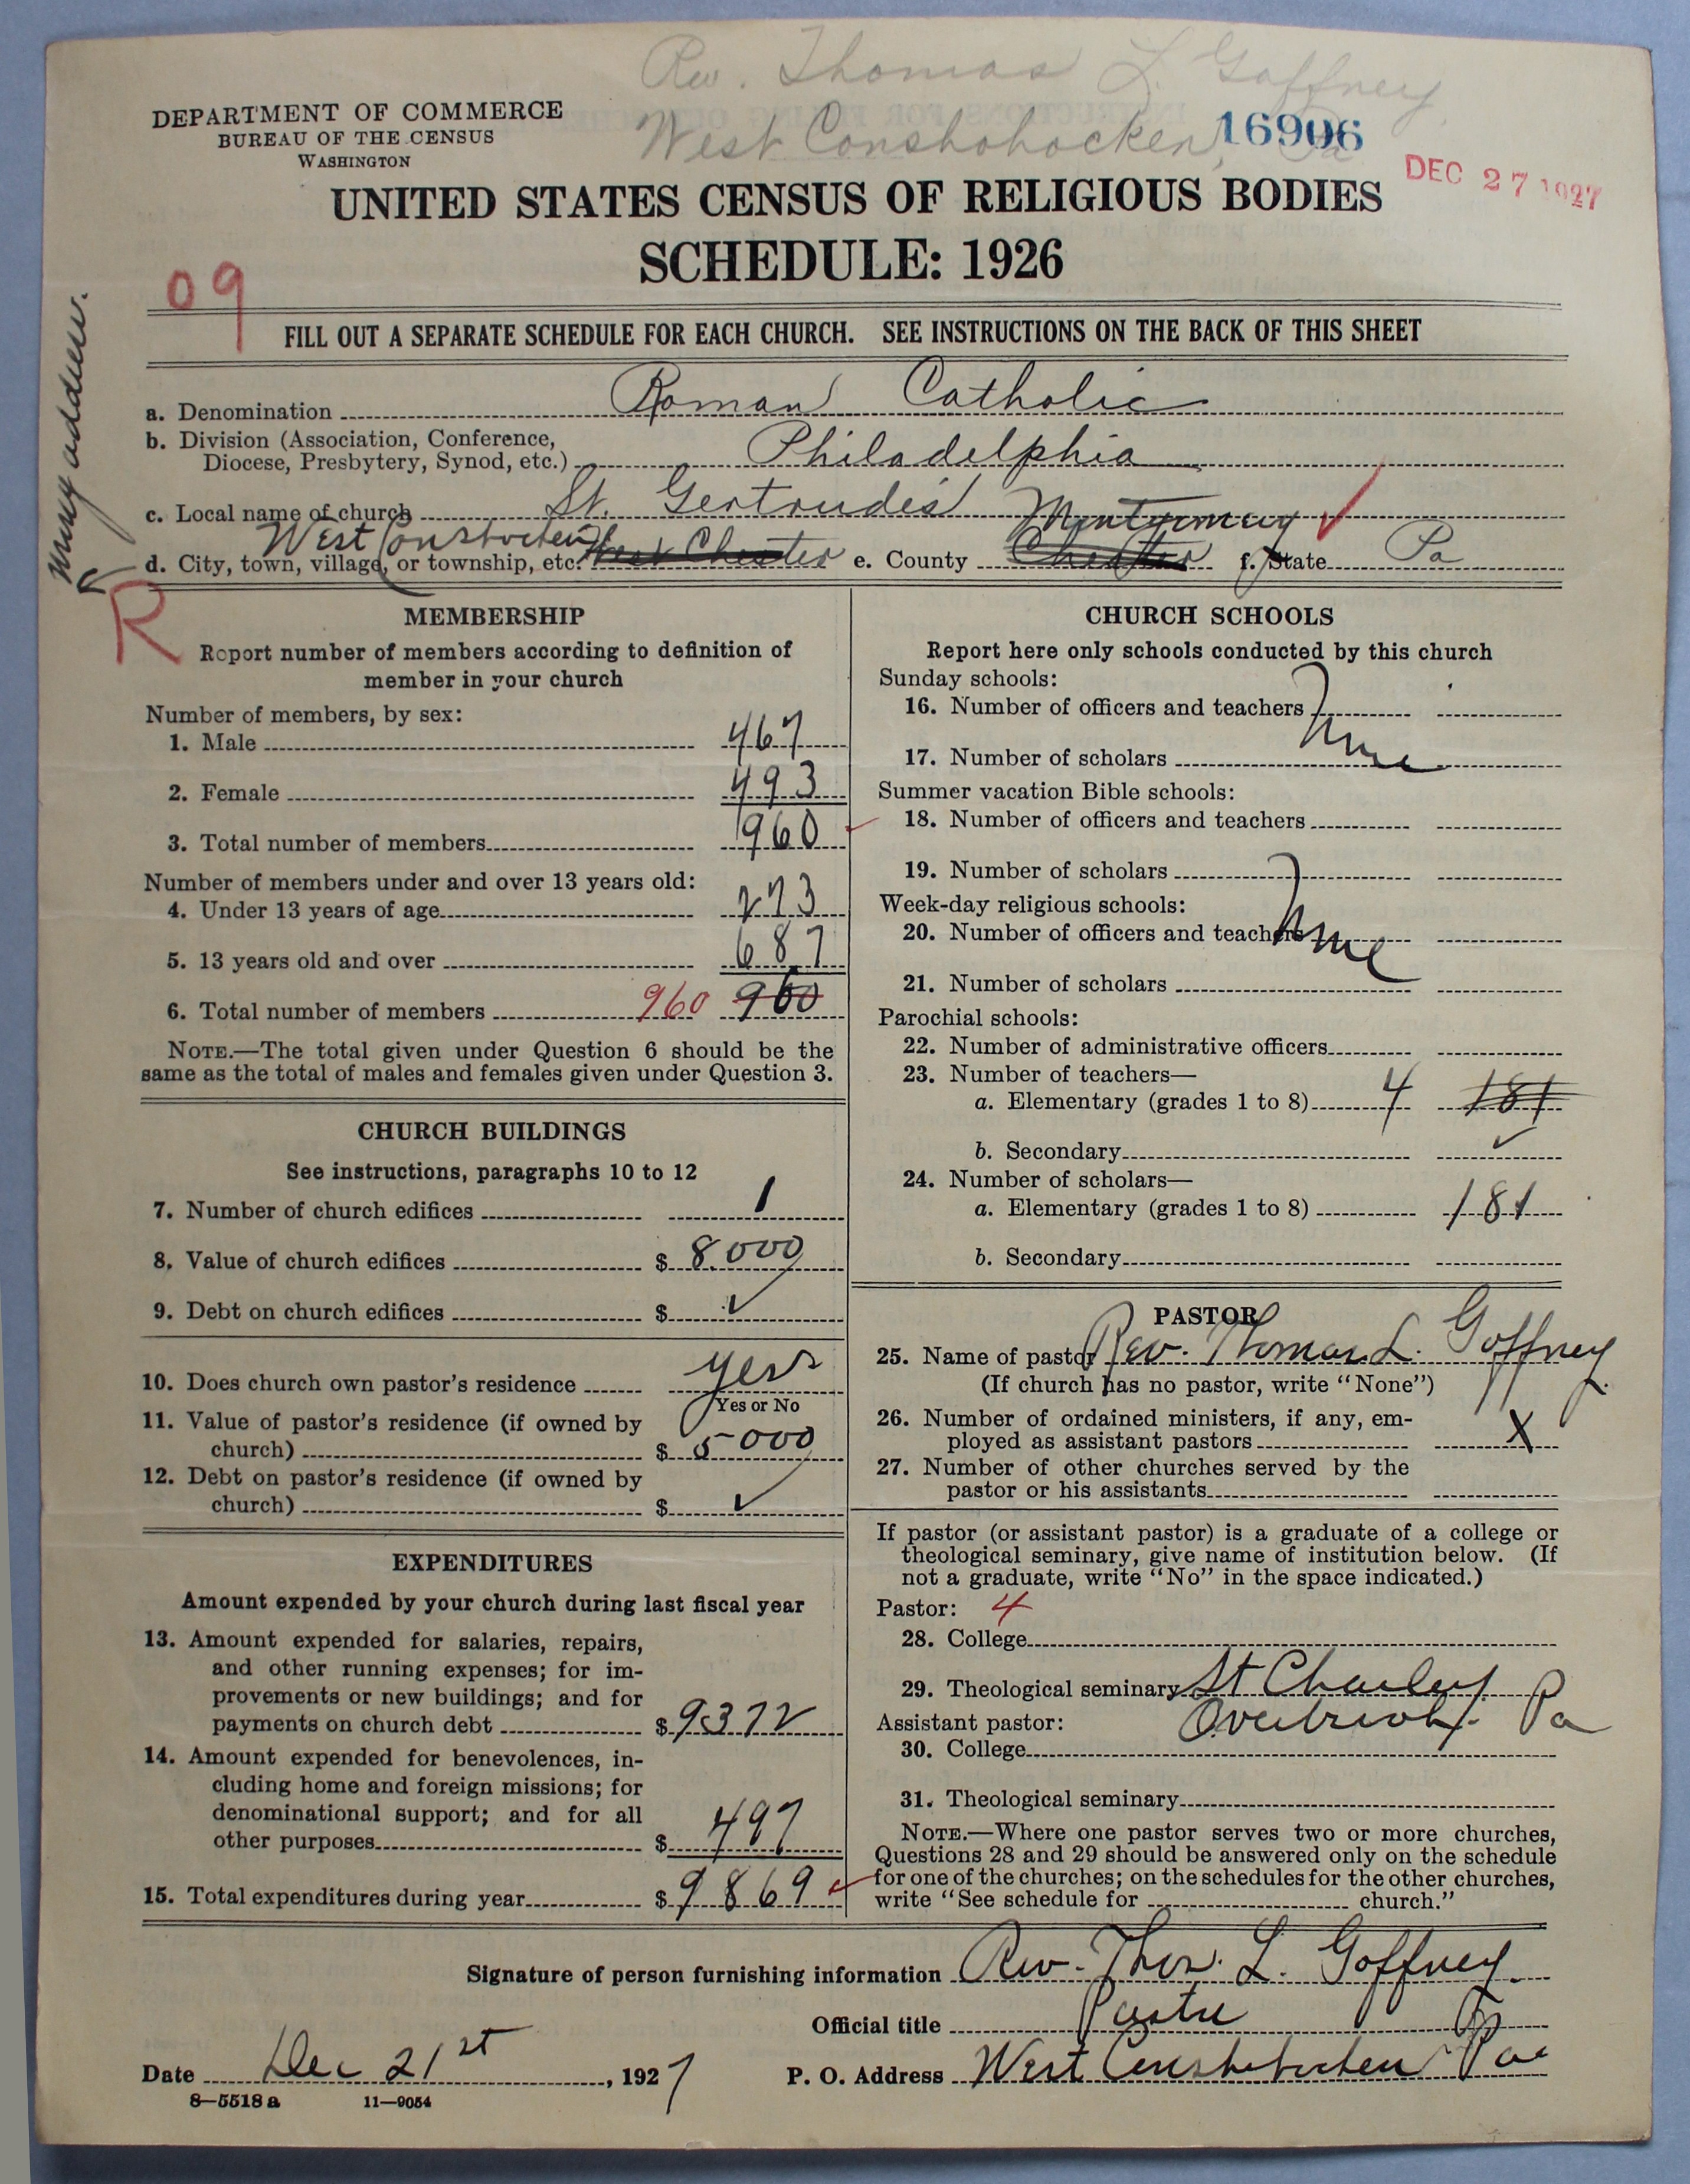 Rev. Thomas L. Gaffney
West Conshohocken, Pa
16906
DEC 27 1927
DEPARTMENT OF COMMERCE
BUREAU OF THE CENSUS
WASHINGTON
UNITED STATES CENSUS OF RELIGIOUS BODIES
SCHEDULE: 1926
09
FILL OUT A SEPARATE SCHEDULE FOR EACH CHURCH. SEE INSTRUCTIONS ON THE BACK OF THIS SHEET
a. Denomination Roman Catholic
b. Division (Association, Conference,
Diocese, Presbytery, Synod, etc.) Philadelphia
c. Local name of church St. Gertrudes
Montgomery
West Conshohocken
d. City, town, village, or township, etc. West Chester e. County Chester f. State Pa
R
MEMBERSHIP
Report number of members according to definition of
member in your church
Number of members, by sex:
1. Male 467
2. Female 493
3. Total number of members 960
Number of members under and over 13 years old:
4. Under 13 years of age 273
5. 13 years old and over 687
6. Total number of members 960 960
NOTE.—The total given under Question 6 should be the
same as the total of males and females given under Question 3.
CHURCH BUILDINGS
See instructions, paragraphs 10 to 12
7. Number of church edifices 1
8. Value of church edifices $ 8000
9. Debt on church edifices $ ✓
10. Does church own pastor's residence yes
Yes or No
11. Value of pastor's residence (if owned by
church) $ 5000
12. Debt on pastor's residence (if owned by
church) $ ✓
EXPENDITURES
Amount expended by your church during last fiscal year
13. Amount expended for salaries, repairs,
and other running expenses; for im-
provements or new buildings; and for
payments on church debt $ 9372
14. Amount expended for benevolences, in-
cluding home and foreign missions; for
denominational support; and for all
other purposes $ 497
15. Total expenditures during year $ 9869
CHURCH SCHOOLS
Report here only schools conducted by this church
Sunday schools:
16. Number of officers and teachers
None
17. Number of scholars
Summer vacation Bible schools:
18. Number of officers and teachers
19. Number of scholars
Week-day religious schools:
20. Number of officers and teachers None
21. Number of scholars
Parochial schools:
22. Number of administrative officers
23. Number of teachers—
a. Elementary (grades 1 to 8) 4 181
b. Secondary ✓
24. Number of scholars—
a. Elementary (grades 1 to 8) 181
b. Secondary
PASTOR
25. Name of pastor Rev. Thomas L. Gaffney
(If church has no pastor, write "None")
26. Number of ordained ministers, if any, em-
ployed as assistant pastors X
27. Number of other churches served by the
pastor or his assistants
If pastor (or assistant pastor) is a graduate of a college or
theological seminary, give name of institution below. (If
not a graduate, write "No" in the space indicated.)
Pastor: 4
28. College
29. Theological seminary St Charles
Assistant pastor: Overbrook. Pa
30. College
31. Theological seminary
NOTE.—Where one pastor serves two or more churches,
Questions 28 and 29 should be answered only on the schedule
for one of the churches; on the schedules for the other churches,
write "See schedule for church."
Signature of person furnishing information Rev. Thos. L. Gaffney.
Official title Pastor
Date Dec 21st, 1927 P. O. Address West Conshohocken Pa
8—5518a 11—9054